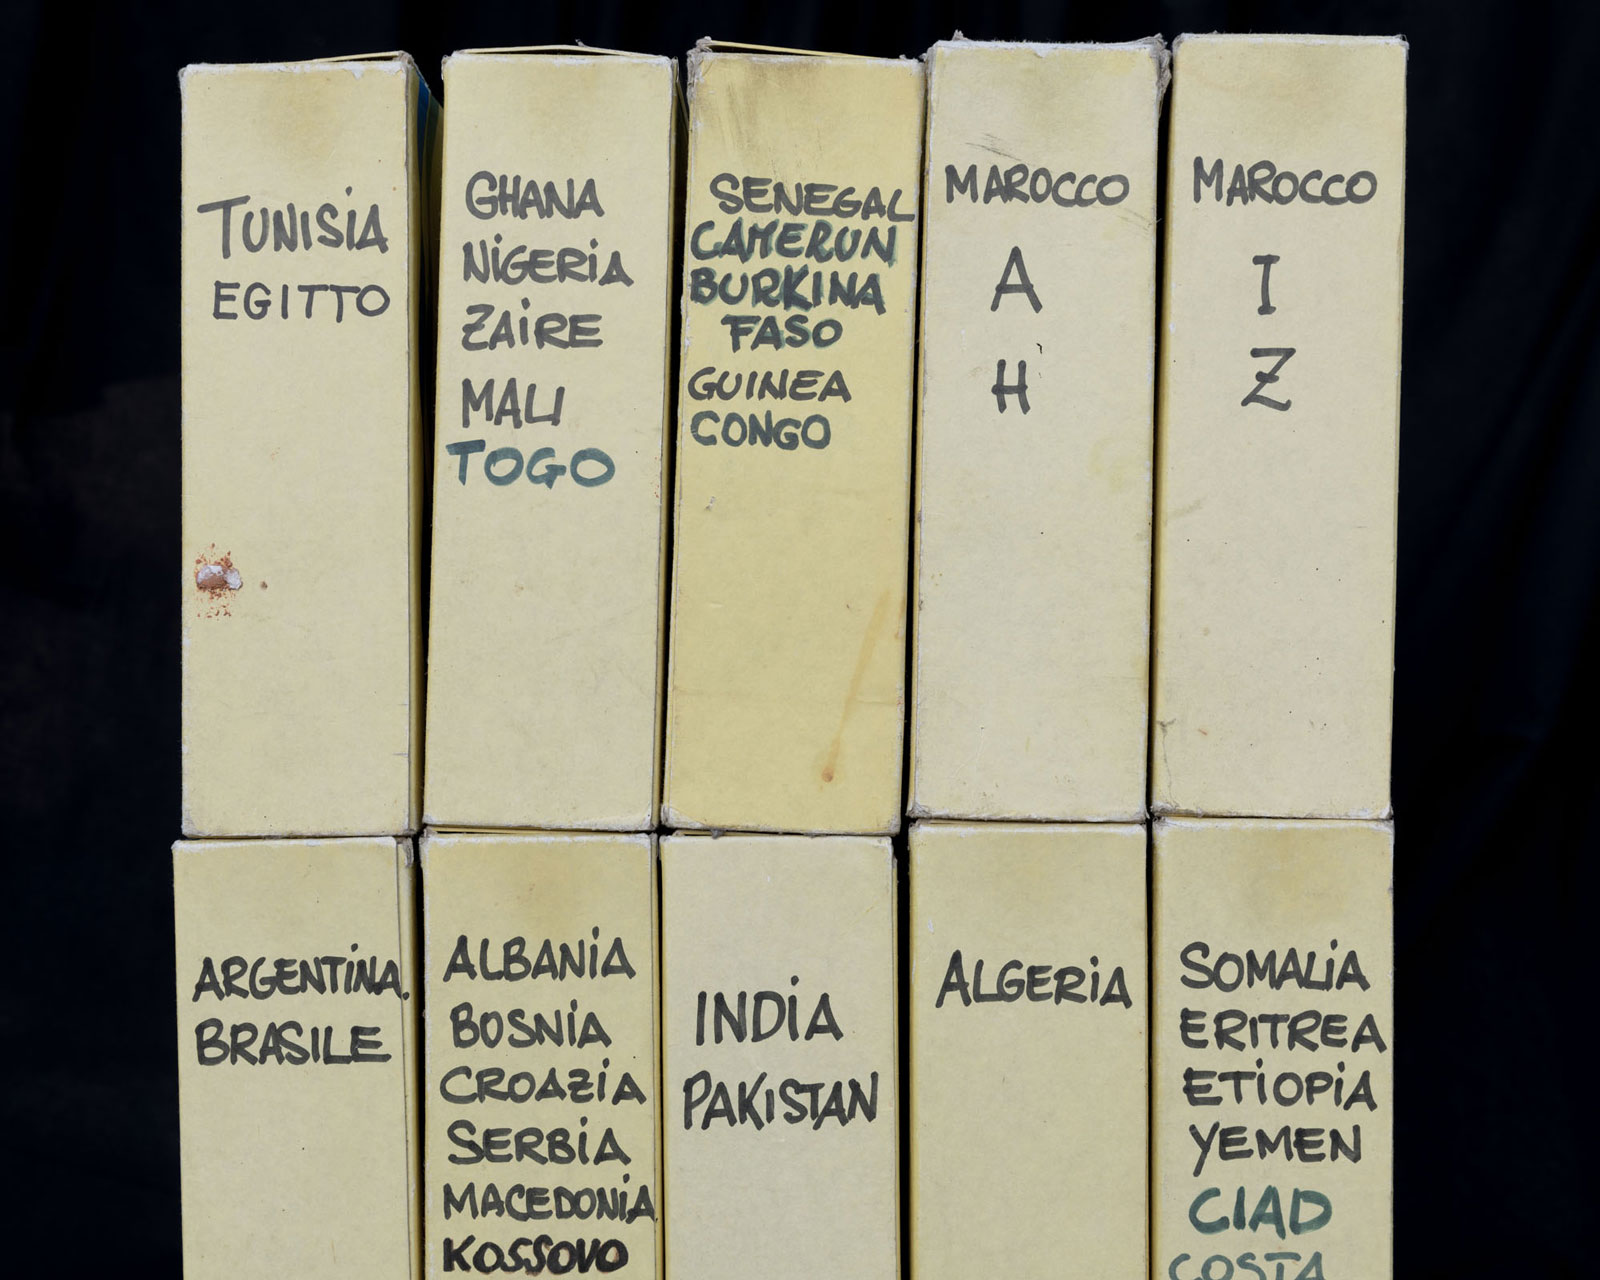 TUNISIA
EGITTO
GHANA
NIGERIA
ZAIRE
MALI
TOGO
SENEGAL
CAMERUN
BURKINA
FASO
GUINEA
CONGO
MAROCCO
A
H
MAROCCO
I
Z
ARGENTINA.
BRASILE
ALBANIA
BOSNIA
CROAZIA
SERBIA
MACEDONIA
KOSSOVO
INDIA
PAKISTAN
ALGERIA
SOMALIA
ERITREA
ETIOPIA
YEMEN
CIAD
COSTA